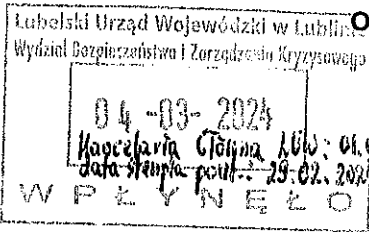 Lubelski Urząd Wojewódzki w Lublinie
Wydział Bezpieczeństwa i Zarządzania Kryzysowego
04 -03- 2024
Kancelaria Główna LUW: 01.
data stempla poczt.: 29-02. 202
WPŁYNĘŁO